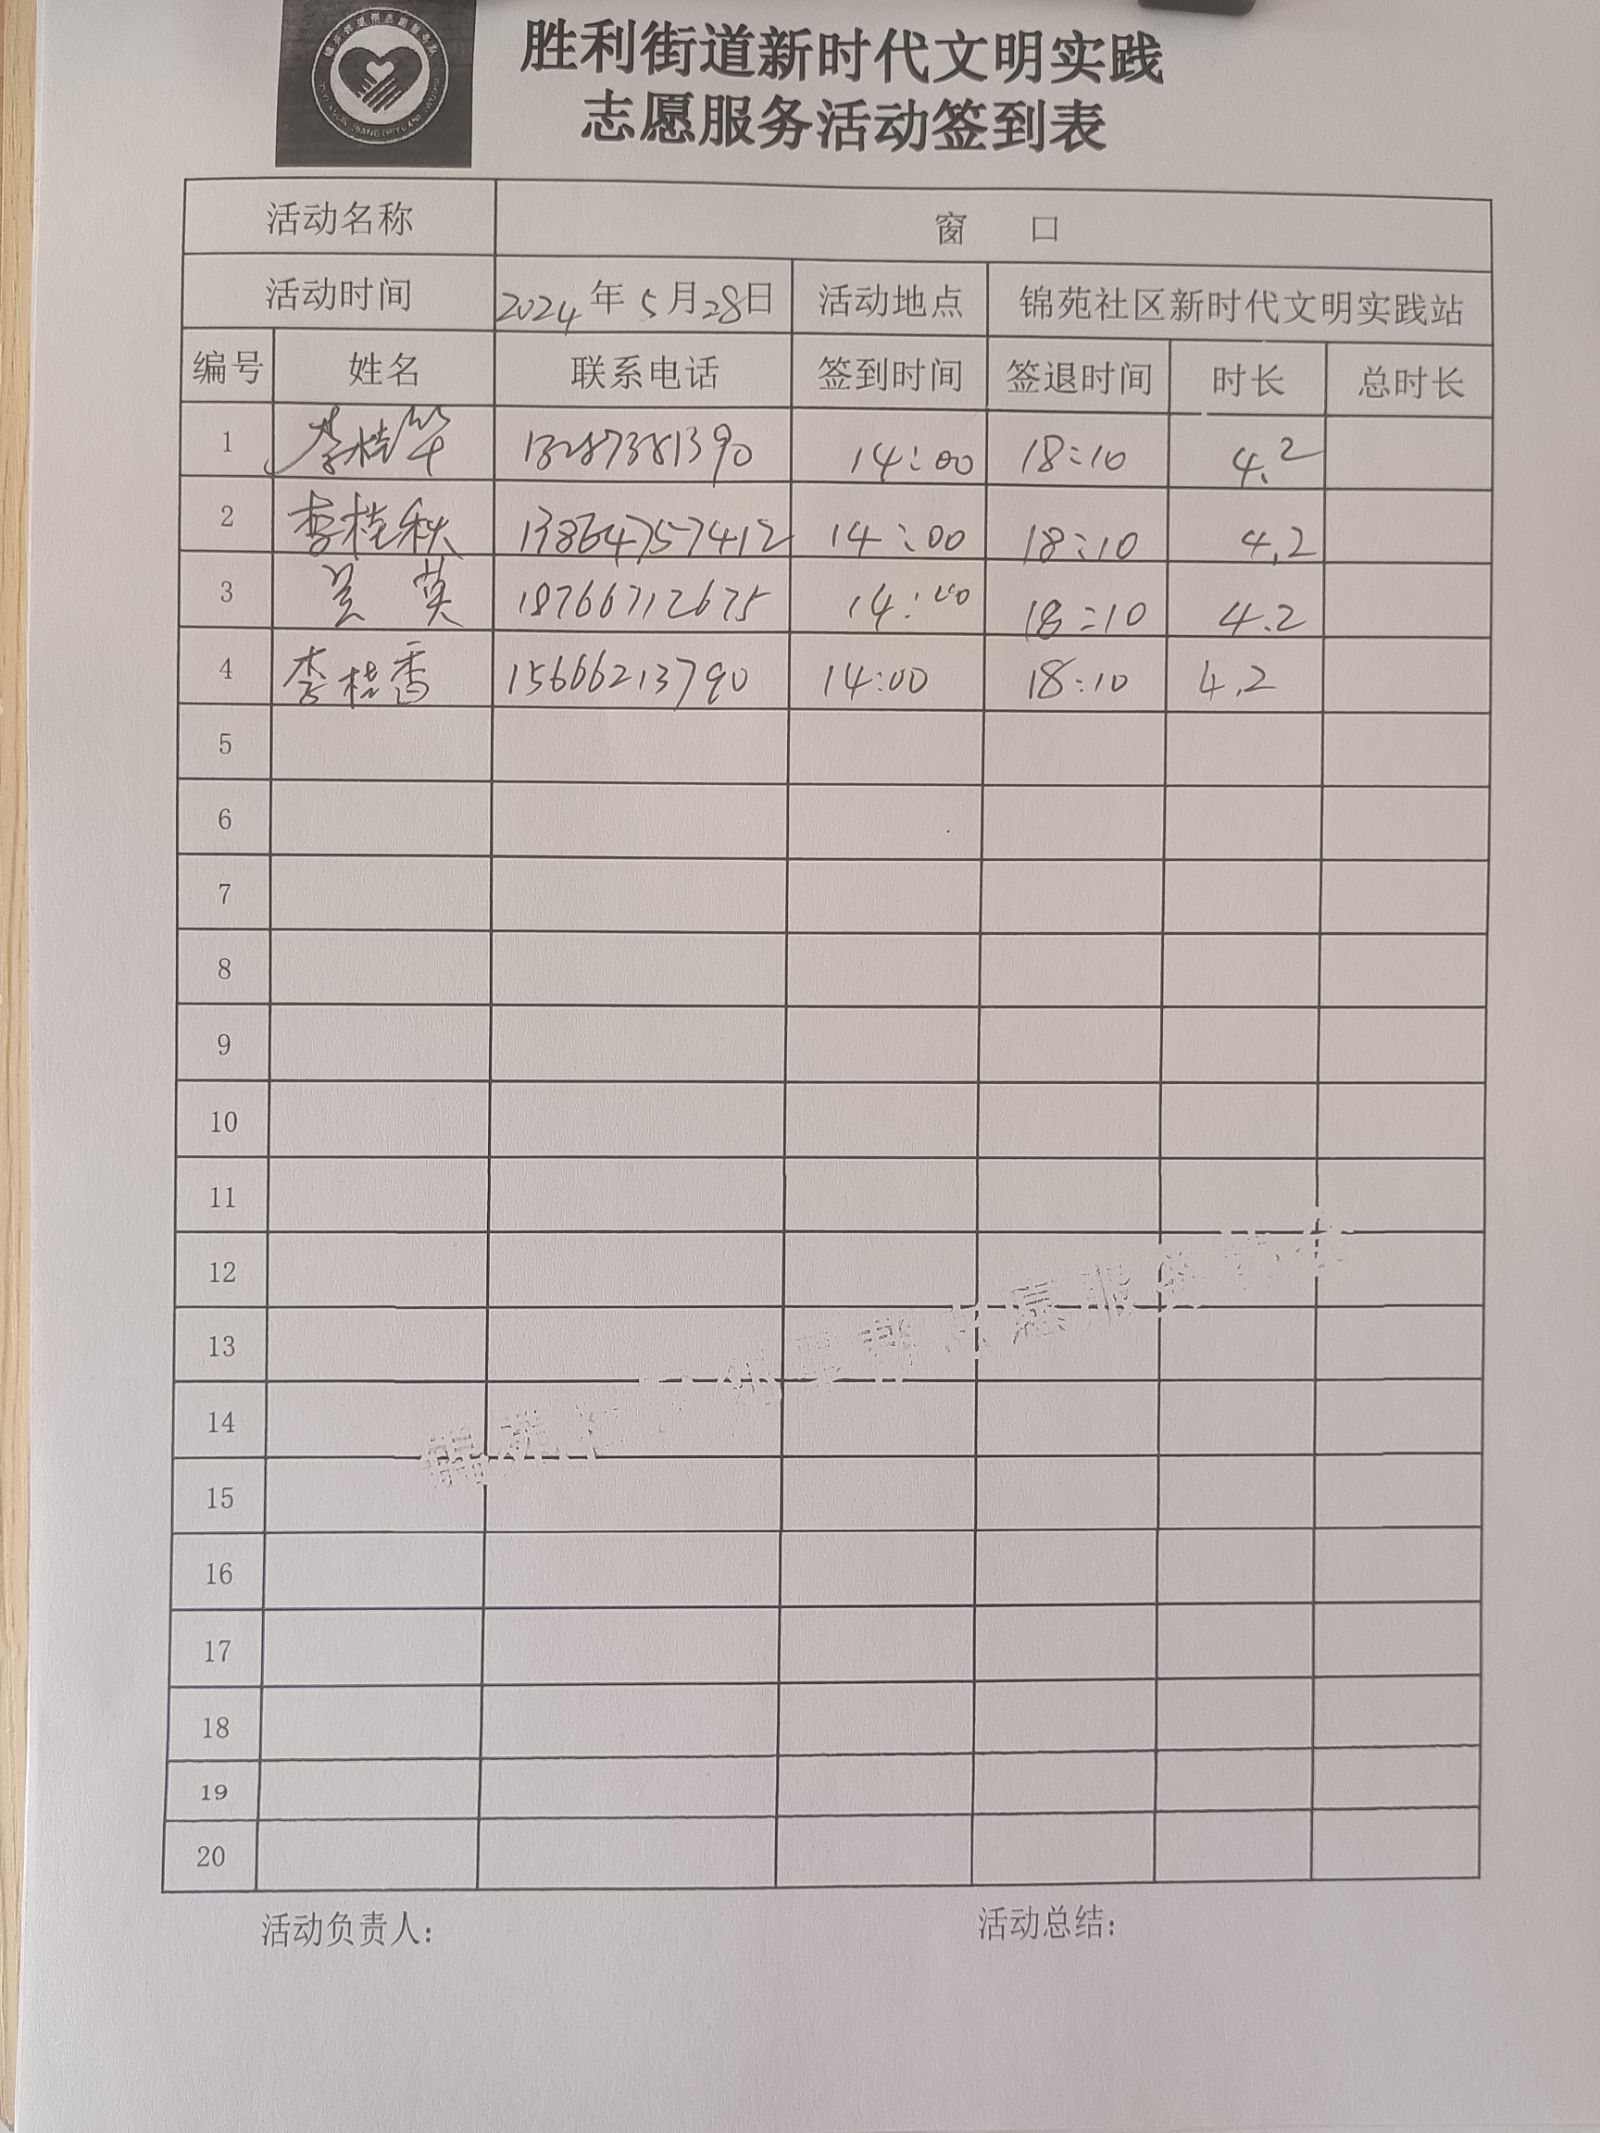 胜利街道新时代文明实践
志愿服务活动签到表
活动名称 窗 口
活动时间 2024年5月28日 活动地点 锦苑社区新时代文明实践站
编号 姓名 联系电话 签到时间 签退时间 时长 总时长
1 李桂华 13287381390 14:00 18:10 4.2
2 李桂秋 13864757412 14:00 18:10 4.2
3 吴英 18766712675 14:00 18:10 4.2
4 李桂香 15666213790 14:00 18:10 4.2
5
6
7
8
9
10
11
12
13
14
15
16
17
18
19
20
活动负责人: 活动总结: